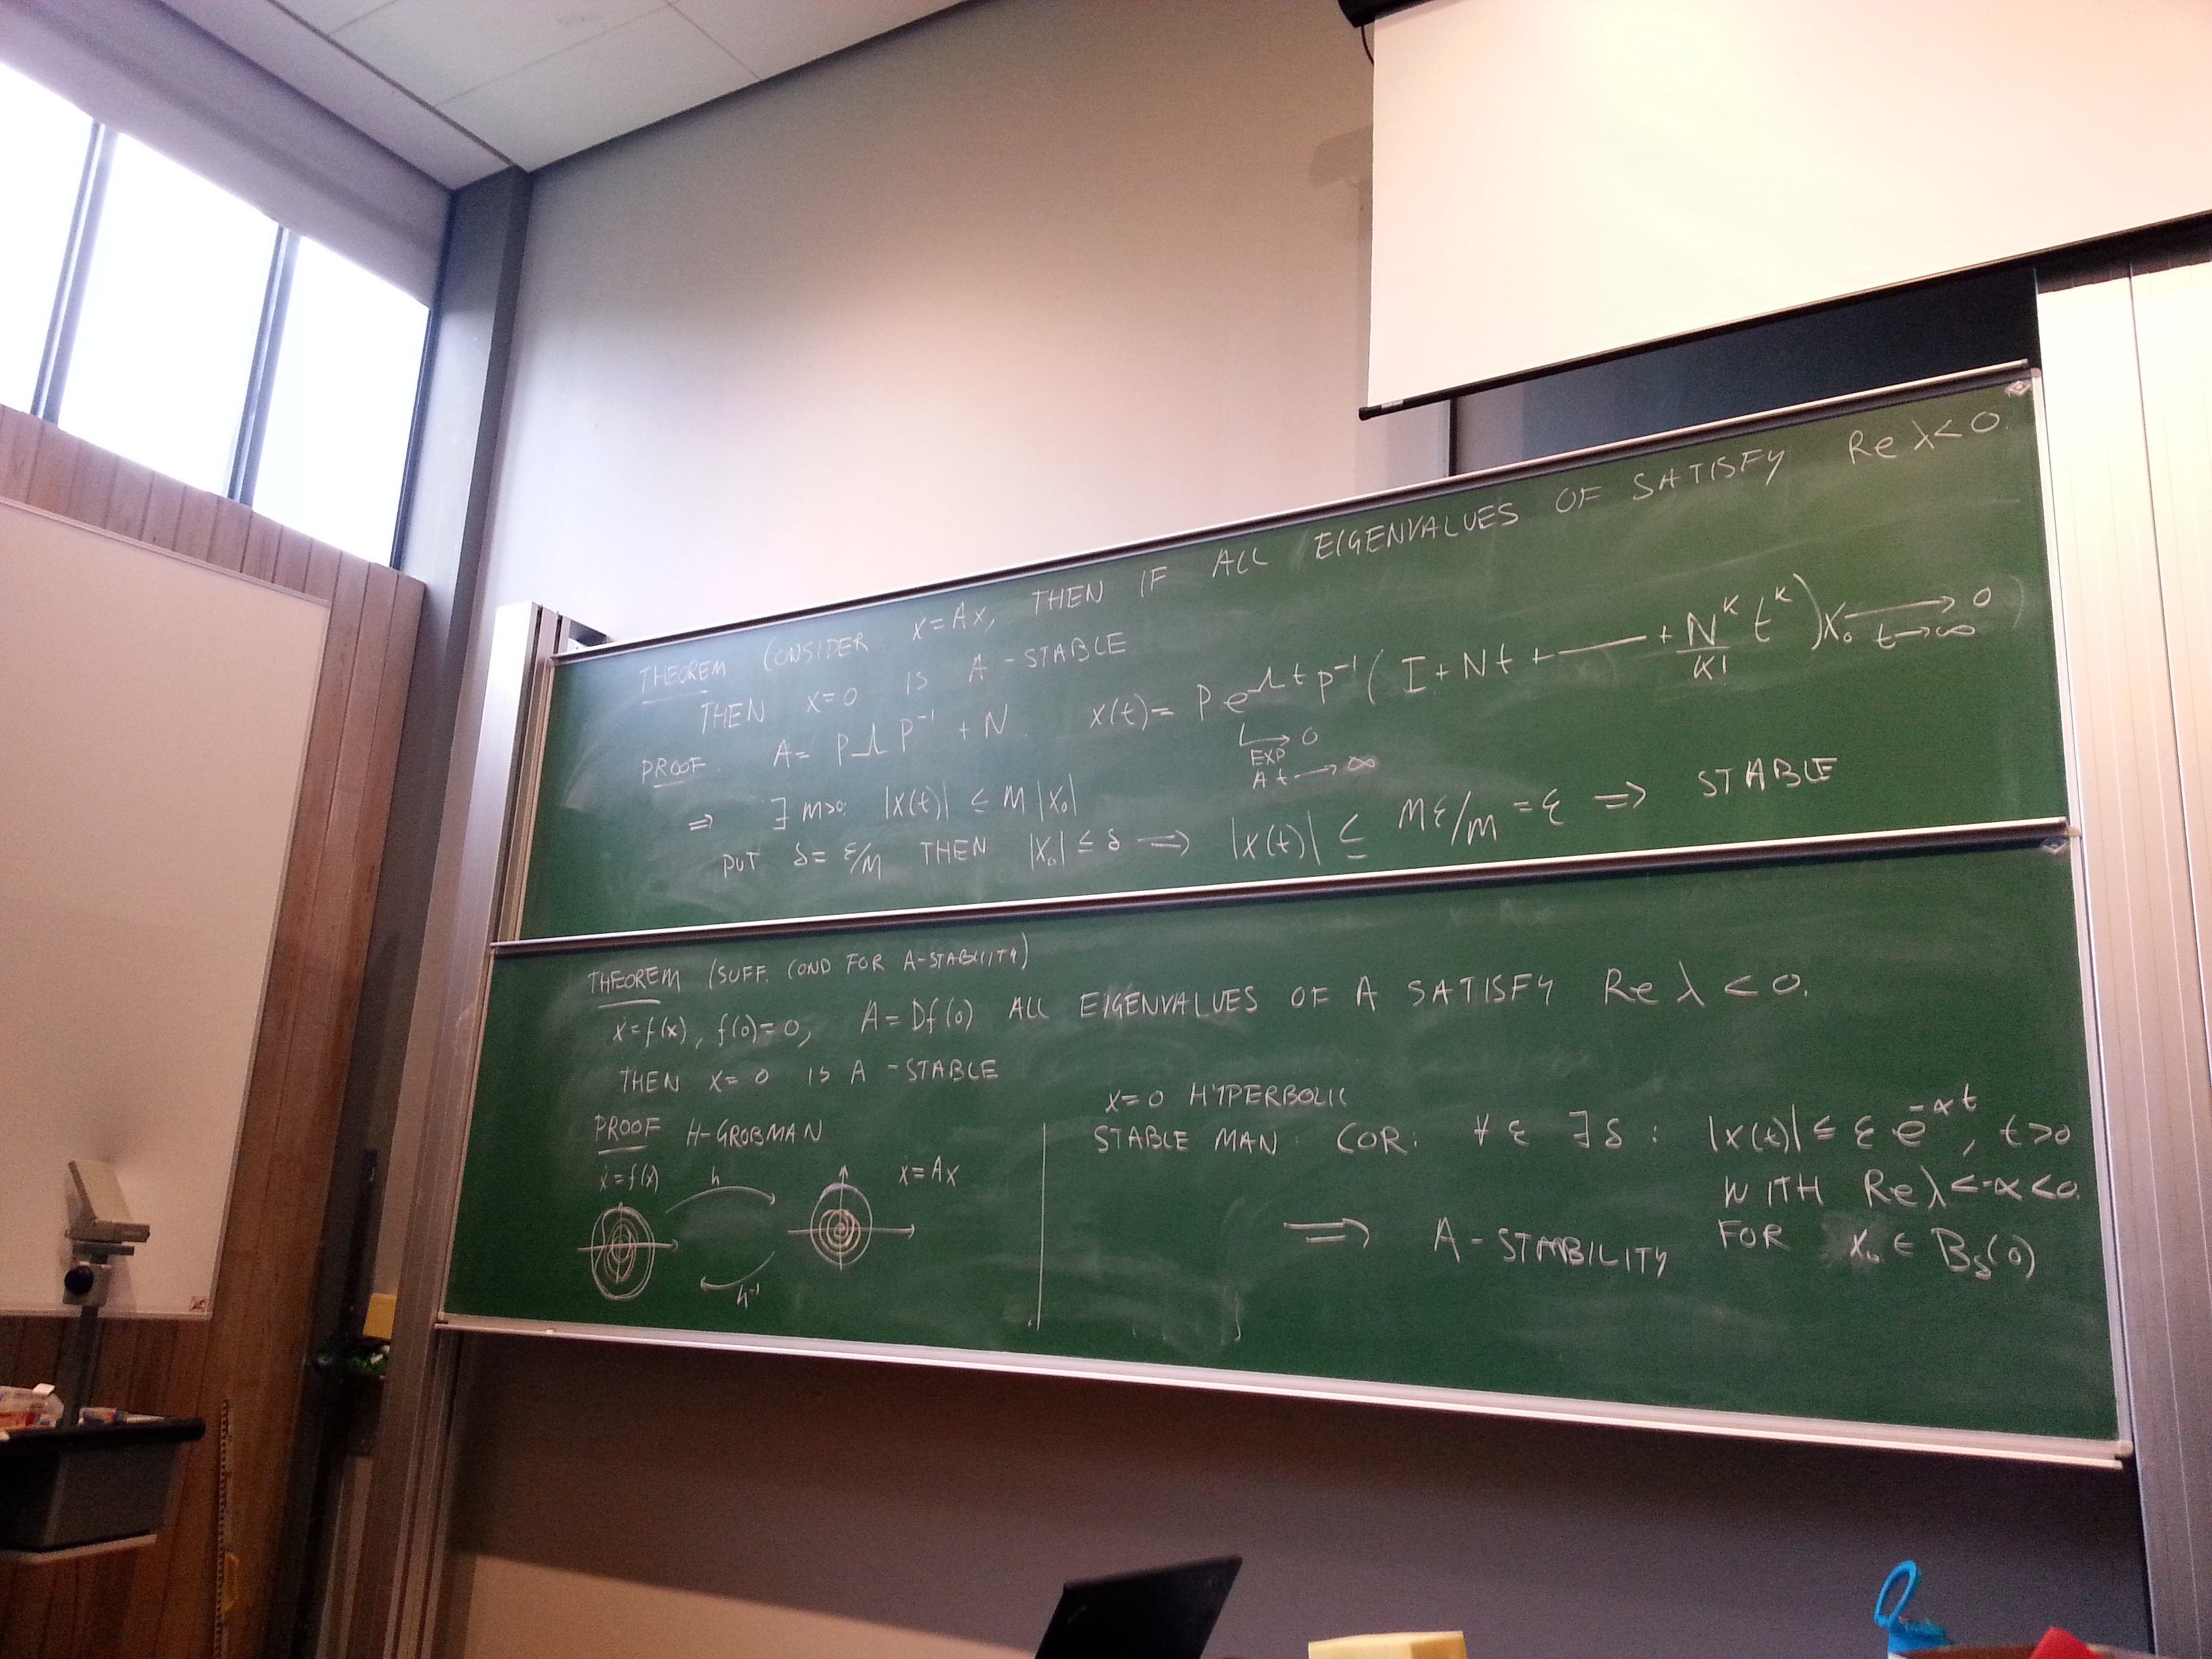 THEOREM (CONSIDER ẋ=Ax, THEN IF ALL EIGENVALUES OF SATISFY Re λ<0.
THEN x=0 IS A-STABLE
PROOF. A= PΛP⁻¹ + N. x(t)= P e^Λt P⁻¹ ( I + Nt + —— + N^K/K! t^K ) x₀ → 0
t→∞
↳ 0
EXP
A t → ∞
⇒ ∃ M>0: |x(t)| ≤ M |x₀|
PUT δ= ε/M THEN |x₀| ≤ δ ⇒ |x(t)| ≤ Mε/M = ε ⇒ STABLE
THEOREM (SUFF. COND FOR A-STABILITY)
ẋ=f(x), f(0)=0, A=Df(0) ALL EIGENVALUES OF A SATISFY Re λ < 0.
THEN x=0 IS A-STABLE
PROOF H-GROBMAN
ẋ=f(x) h ẋ=Ax
h⁻¹
x=0 HYPERBOLIC
STABLE MAN. COR: ∀ ε ∃ δ : |x(t)| ≤ ε e^-αt, t>0
WITH Re λ<-α<0.
⇒ A-STABILITY FOR x₀ ∈ B_δ(0)